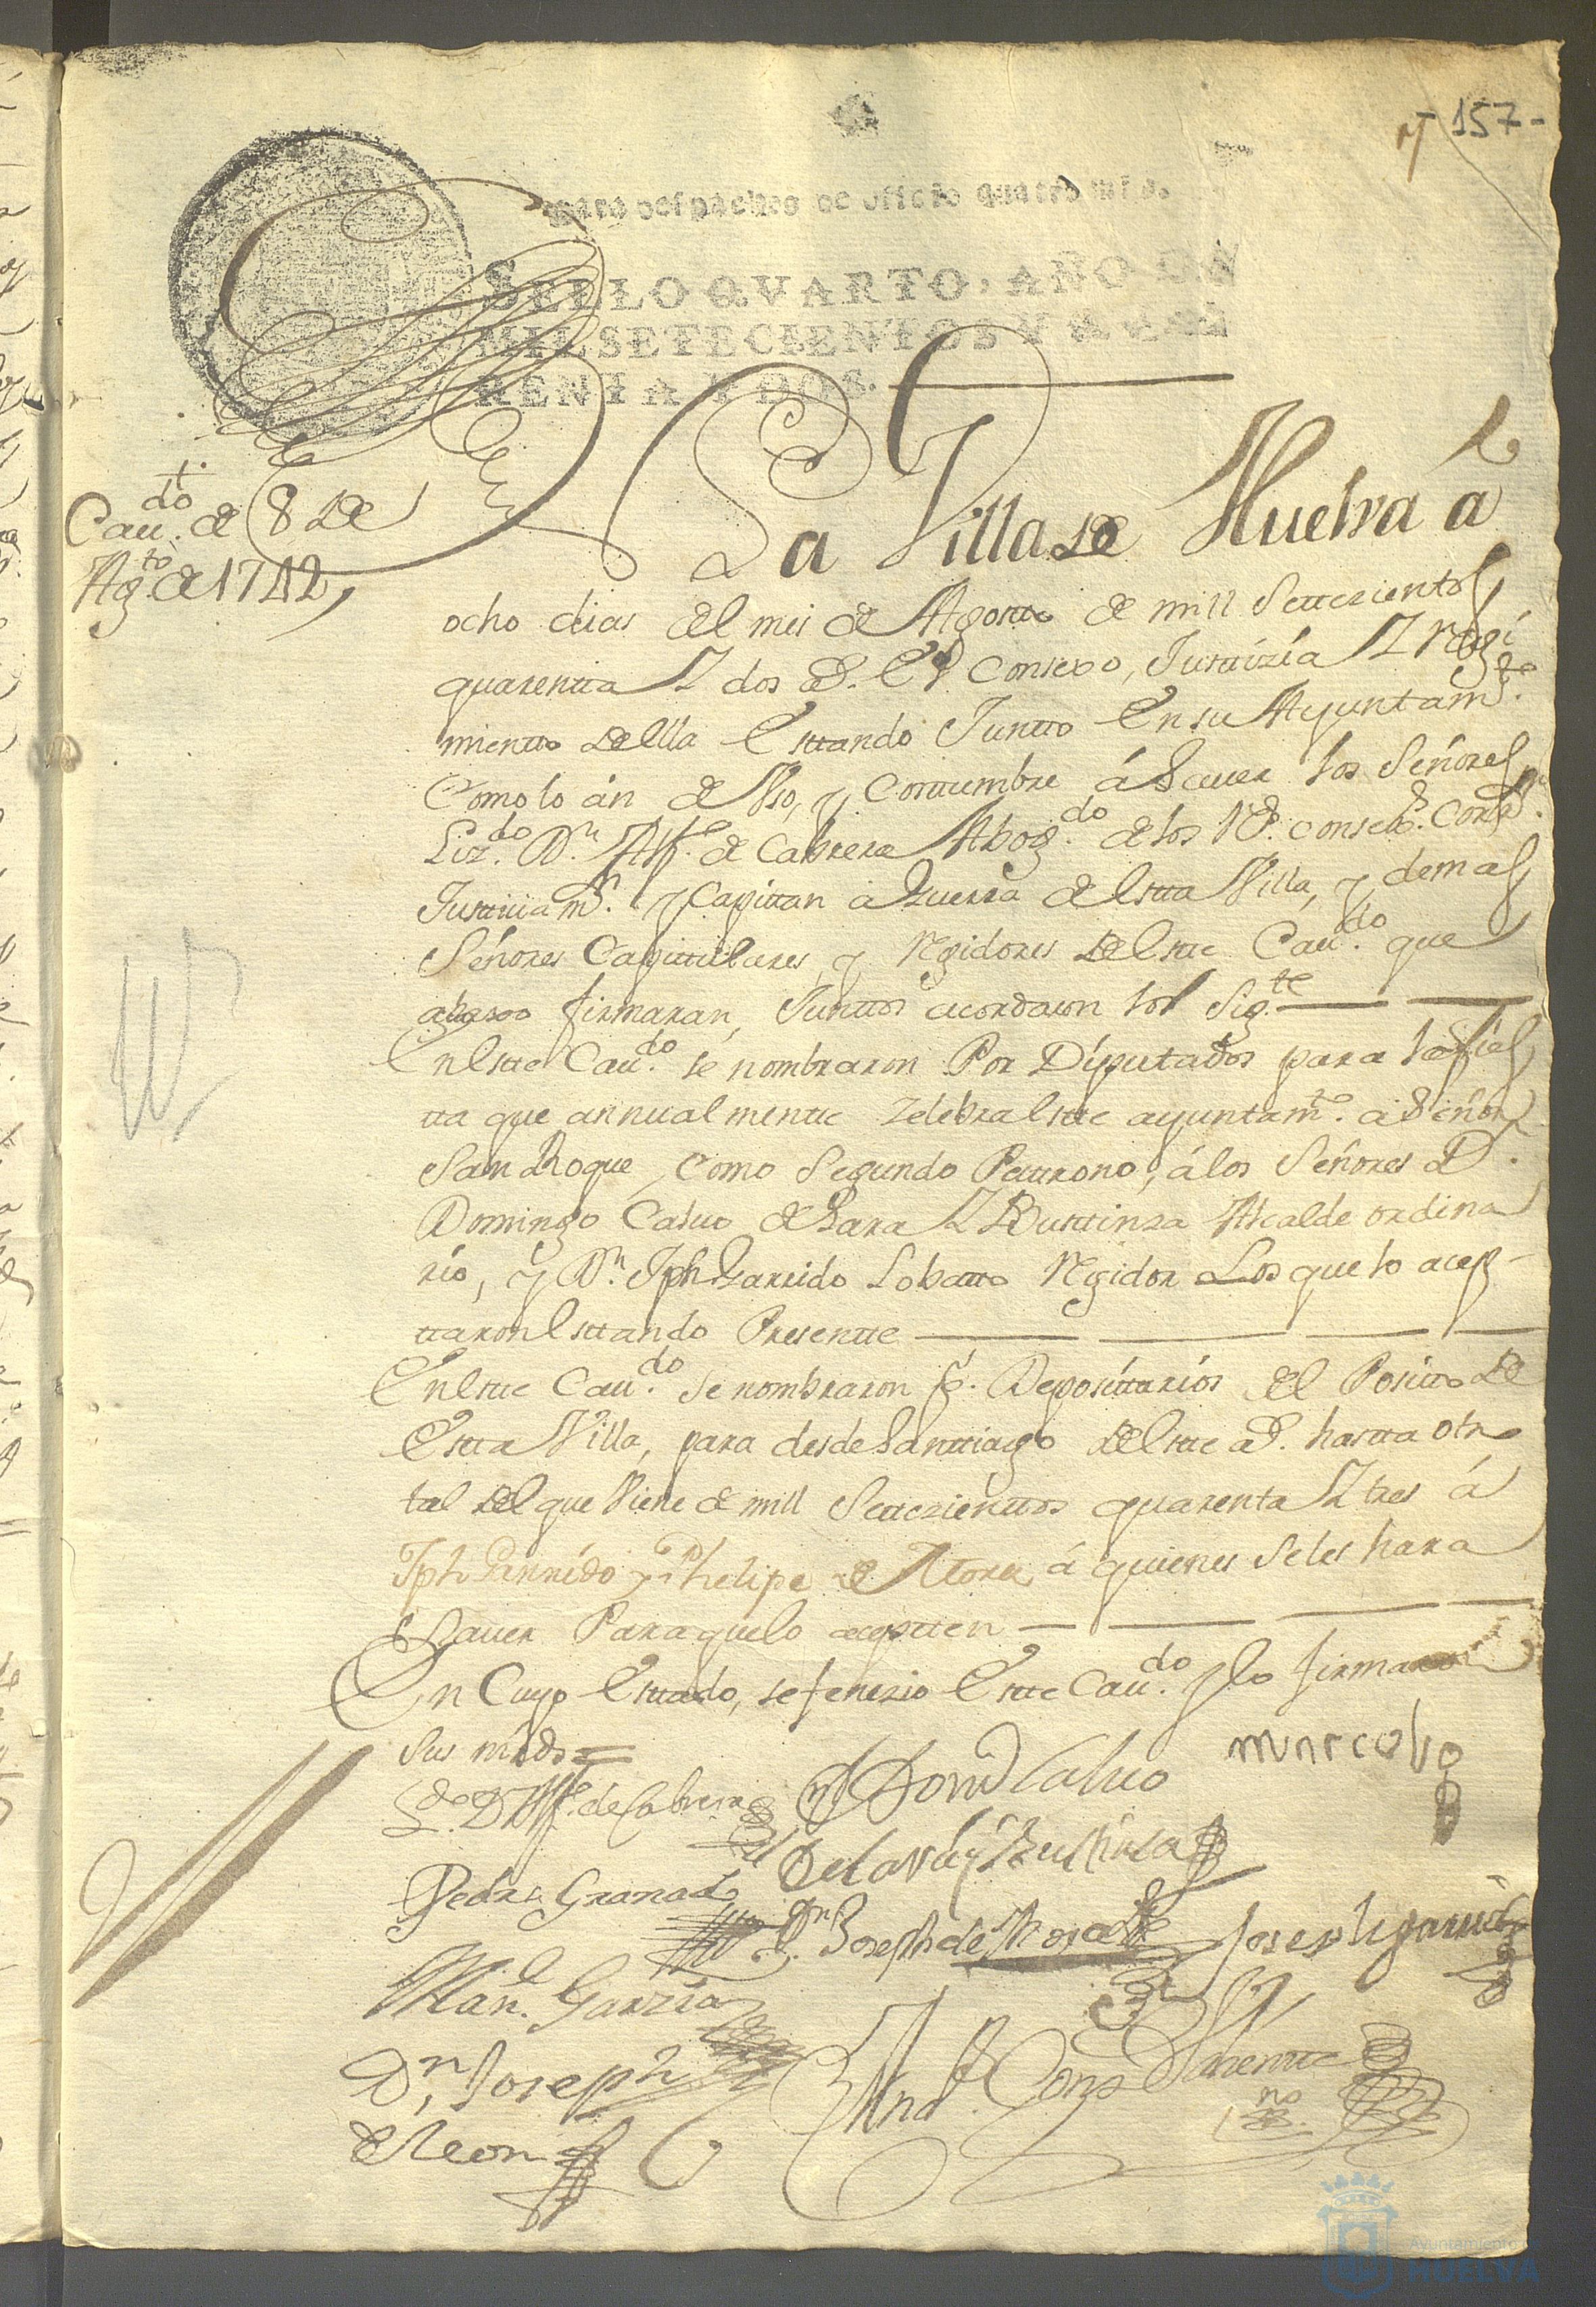 157-
para despachos de officio quatro mrs.
SELLO QVARTO, AÑO DE
MIL SETECIENTOS Y QVA
RENTA Y DOS.
Cau.do de 8 de
Ag.to de 1742
En La Villa de Huelva á
ocho dias del mes de Agosto de mill Settezientos
quarentta Y dos a.s El Consexo, Justtizia Y regi
miento della Esttando Juntto En su Ayuntam.to
Como lo án de Vso, y Costtumbre á Sauer los Señores
Liz.do D.n Alf.o de Cabrera Abog.do de los R.s consexos Corex.or
Justtizia m.r y Capittan a Guerra destta Villa, y demas
Señores Capittulares, y Regidores destte Cau.do que
abaxo firmaran, Junttos acordaron lo Sig.te
En estte Cau.do se nombraron Por Diputados para la fies
tta que annualmentte zelebra estte ayuntam.to a Señor
San Roque, como Segundo Pattrono, á los Señores D.n
Domingo Caluo de Lara Y Busttinza Alcalde ordina
rio, y D.n Jph Garrido Lobatto Regidor Los que lo acep-
ttaron esttando Presentte
En estte Cau.do se nombraron p.r Deposittarios del Positto de
Estta Villa, para desde Santtiago destte a.o hastta otro
tal del que Viene de mill Settezienttos quarenta Y tres á
Jph Garrido y Phelipe de Mora á quienes se les hara
Sauer Para que lo azeptten
En Cuyo Esttado, se fenezio Estte Cau.do y lo firmaron
sus mrds =
L.do D. Alf.o de Cabrera
D.n Dom.o Caluo
de Lara y Bustinza
marcolio
Pedro Granado
D.n Joseph de
Joseph garrido
Man.l Garzia
D.n Joseph
de Leon
And.s
n.o
Ayuntamiento de
HUELVA